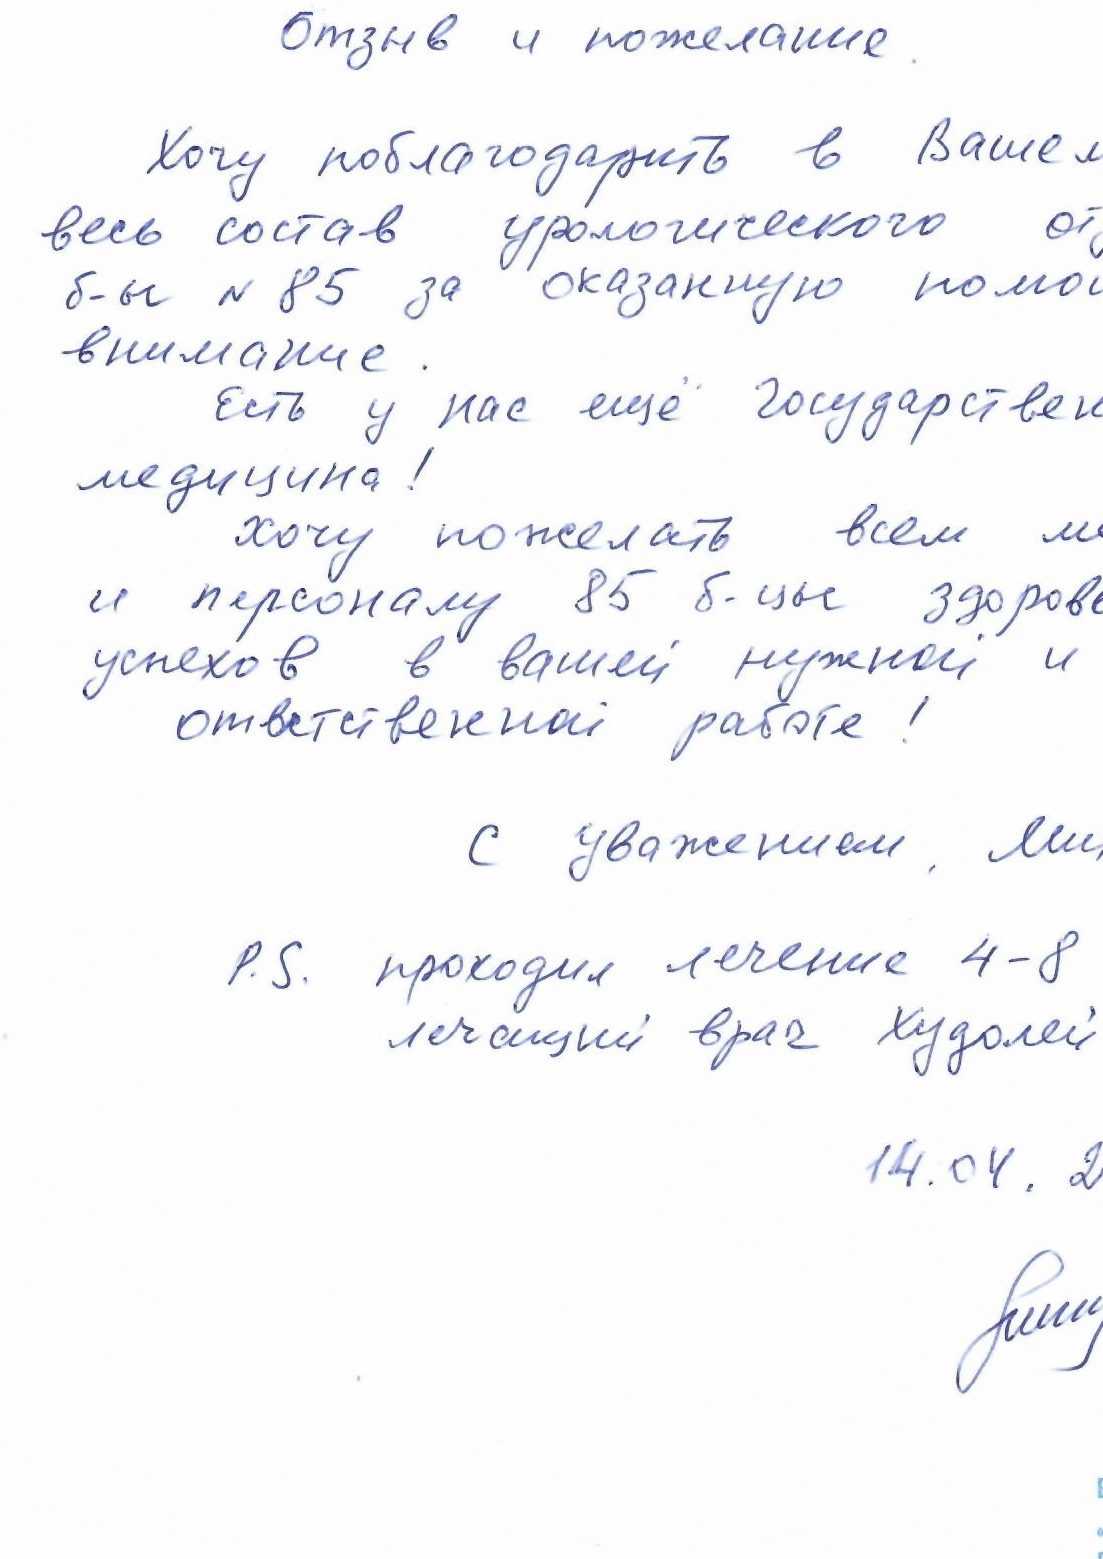 Отзыв и пожелание.
Хочу поблагодарить в Вашем
весь состав урологического
б-ы N 85 за оказанную
внимание.
Есть у нас ещё государствен
медицина!
Хочу пожелать всем
и персоналу 85 б-цы здоровь
успехов в вашей нужной и
ответственной работе!
С уважением,
P.S. проходил лечение 4-8
лечащий врач Худолей
14.04.2